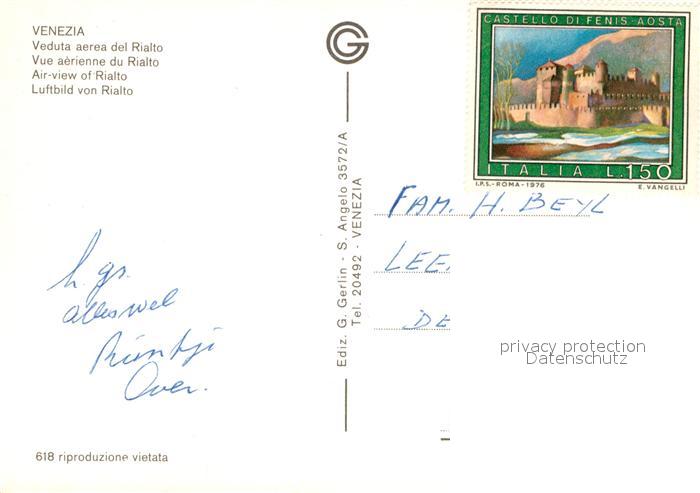 VENEZIA
Veduta aerea del Rialto
Vue aèrienne du Rialto
Air-view of Rialto
Luftbild von Rialto
G
CASTELLO DI FENIS-AOSTA
ITALIA L.150
I.P.S.-ROMA-1976 E. VANGELLI
Ediz. G. Gerlin - S. Angelo 3572/A
Tel. 20492 - VENEZIA
FAM. H. BEYL
LEE.
DE
privacy protection
Datenschutz
h. gs.
alleswel
Over.
618 riproduzione vietata